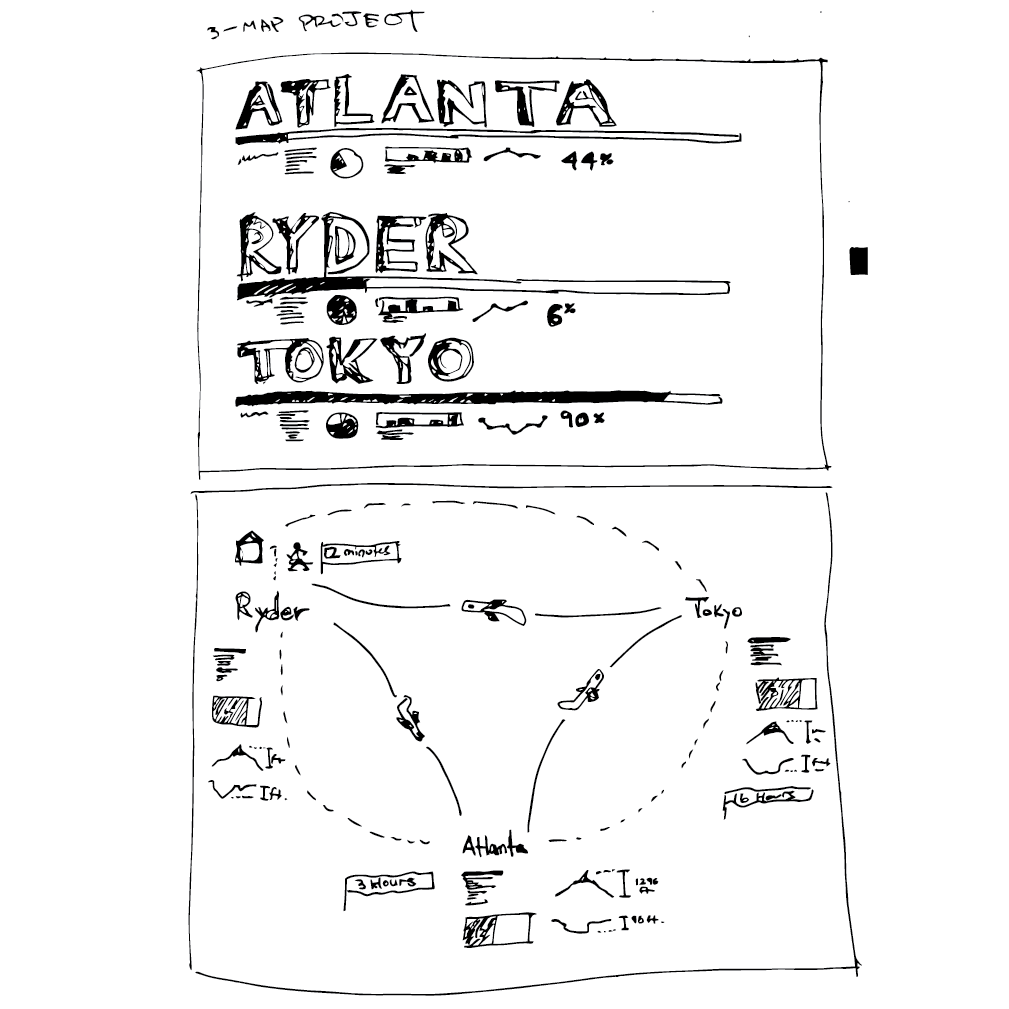 3-MAP PROJECT
ATLANTA
44%
RYDER
6%
TOKYO
90%
12 minutes
Ryder
Tokyo
ft
ft.
16 Hours
Atlanta
3 Hours
1296
ft
90ft.